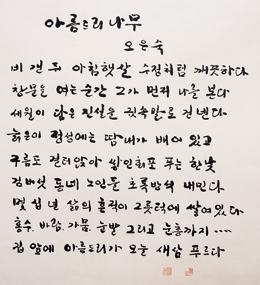 아름드리 나무
오은숙
비 갠 뒤 아침햇살 수정처럼 깨끗하다
창문을 여는 순간 그가 먼저 나를 본다
세월이 담은 진실을 귓속말로 건넨다
흙은이 평성에는 땀내가 배어 있고
구름도 걸터앉아 쌓인회포 푸는 한낮
검버섯 돋네 노인들 초록방석 내민다
몇 십 년 삶의 흔적이 그릇턱에 쌓여있다
홍수, 바람, 가뭄, 눈발 그리고 눈총까지 ····
집 앞에 아름드리가 오늘 새삼 푸르다